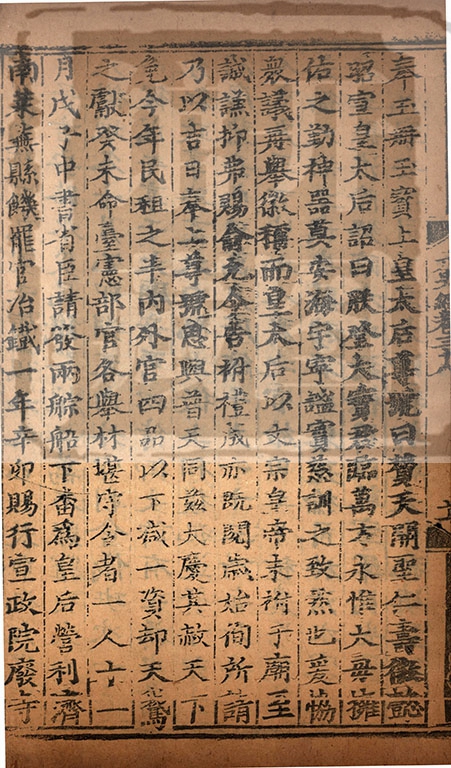 奉玉冊玉寶上皇太后尊號曰贊天開聖仁壽徽懿
昭宣皇太后詔曰朕登大寶君臨萬方永惟大母擁
佑之勤神器奠安海宇寧謐實慈訓之致然也爰協
衆議再舉徽稱而皇太后以文宗皇帝未祔于廟至
誠謙抑弗賜俞允今告祔禮成亦既閱歲始徇所請
乃以吉日奉上尊號思與普天同茲大慶其赦天下
免今年民租之半内外官四品以下減一資却天鵞
之獻癸未命臺憲部官各舉材堪守令者一人十一
月戊子中書省臣請發兩䑸船下番爲皇后營利濟
南萊蕪縣饑罷官冶鐵一年辛卯賜行宣政院廢寺